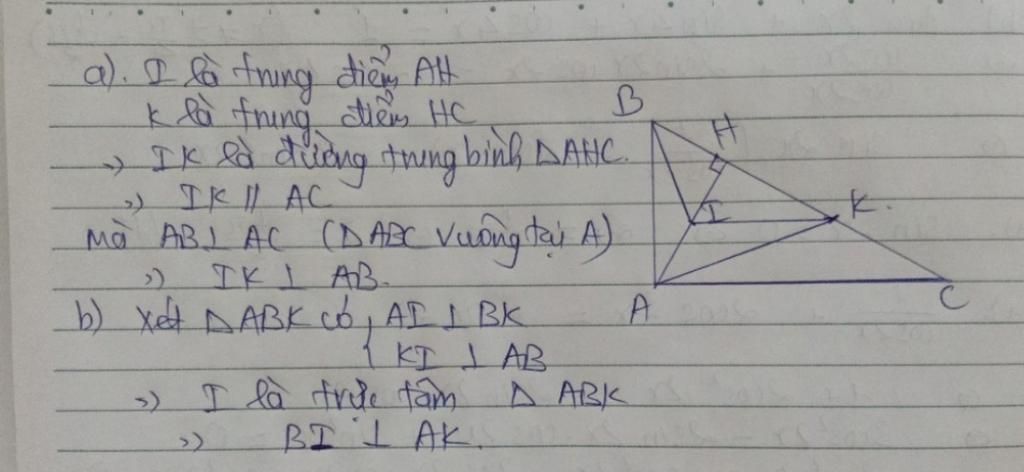 a). I là trung điểm AH
K là trung điểm HC
=> IK là đường trung bình ΔAHC.
=> IK // AC
Mà AB ⊥ AC (ΔABC vuông tại A)
=> IK ⊥ AB.
b) Xét ΔABK có { AI ⊥ BK
KI ⊥ AB
=> I là trực tâm Δ ABK
=> BI ⊥ AK.
B
H
I
K.
A
C